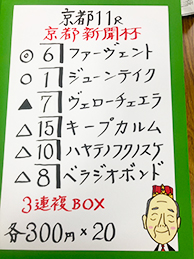 京都11R
京都新聞杯
◎6 ファーヴェント
○1 ジューンテイク
▲7 ヴェローチェエラ
△15 キープカルム
△10 ハヤテノフクノスケ
△8 ベラジオボンド
3連複BOX
各300円×20